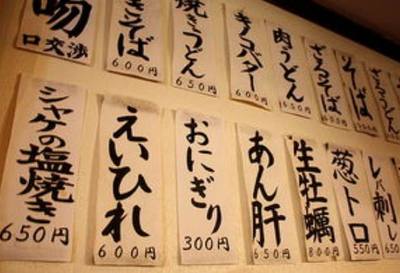 吻
口交渉
きそば
600円
焼きうどん
650円
キノコバター
600円
肉うどん
650円
ざるそば
600円
そば
ざるうどん
シャケの塩焼き
650円
えいひれ
600円
おにぎり
300円
あん肝
600円
生牡蠣
800円
葱トロ
550円
レバ刺し
650円